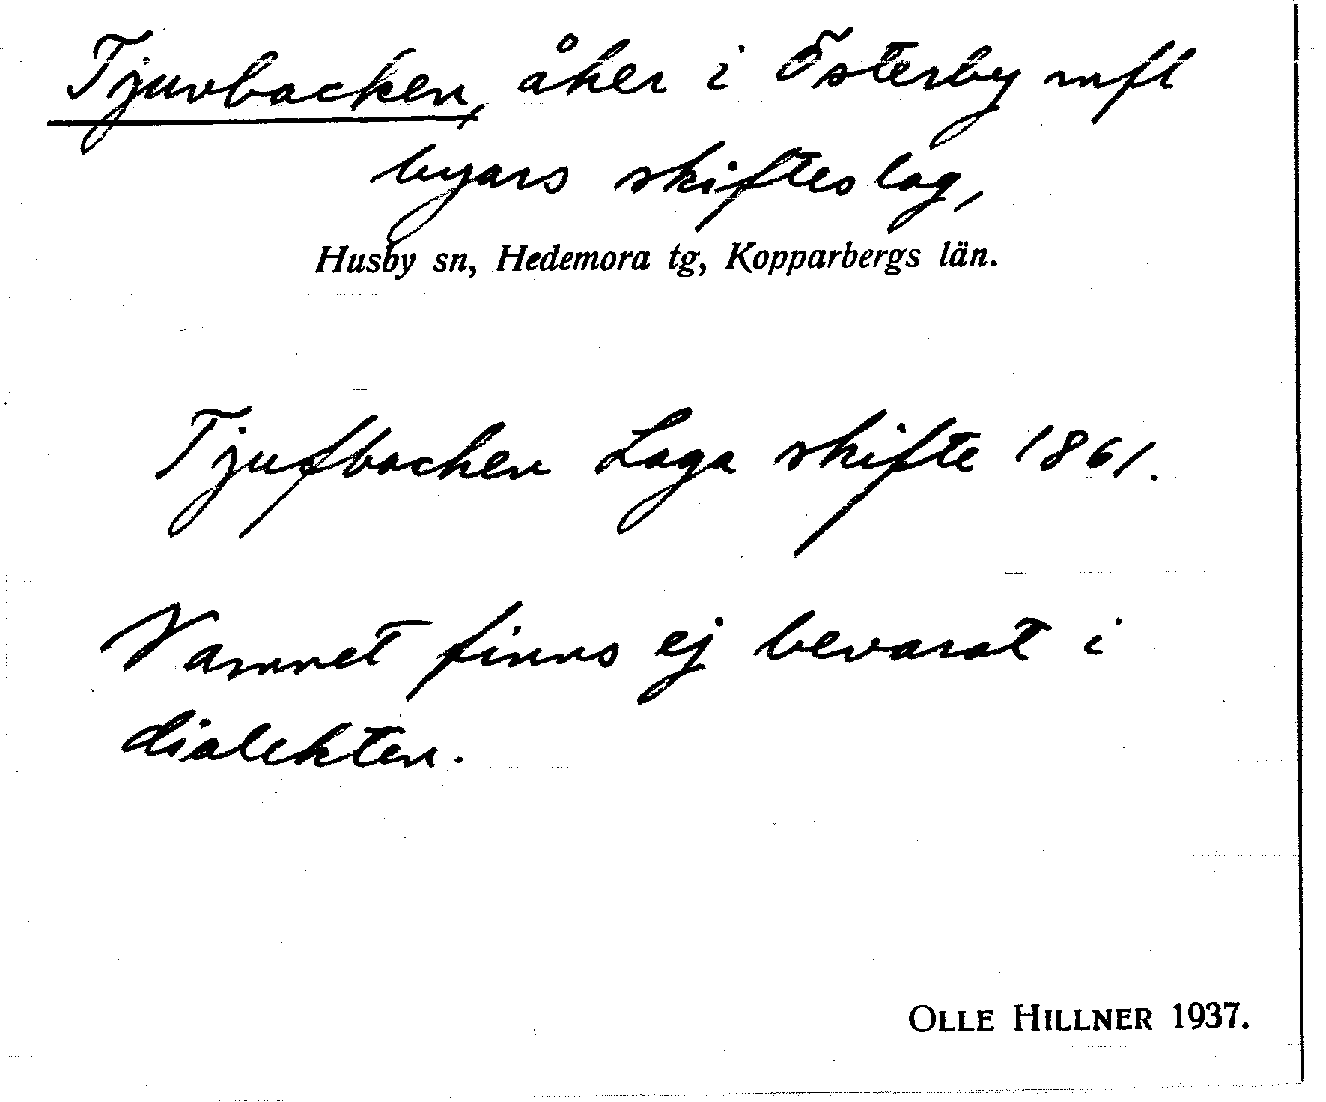 Tjuvbacken, åker i Österby mfl
byars skifteslag,
Husby sn, Hedemora tg, Kopparbergs län.
Tjufbacken Laga skifte 1861.
Namnet finns ej bevarat i
dialekten.
OLLE HILLNER 1937.